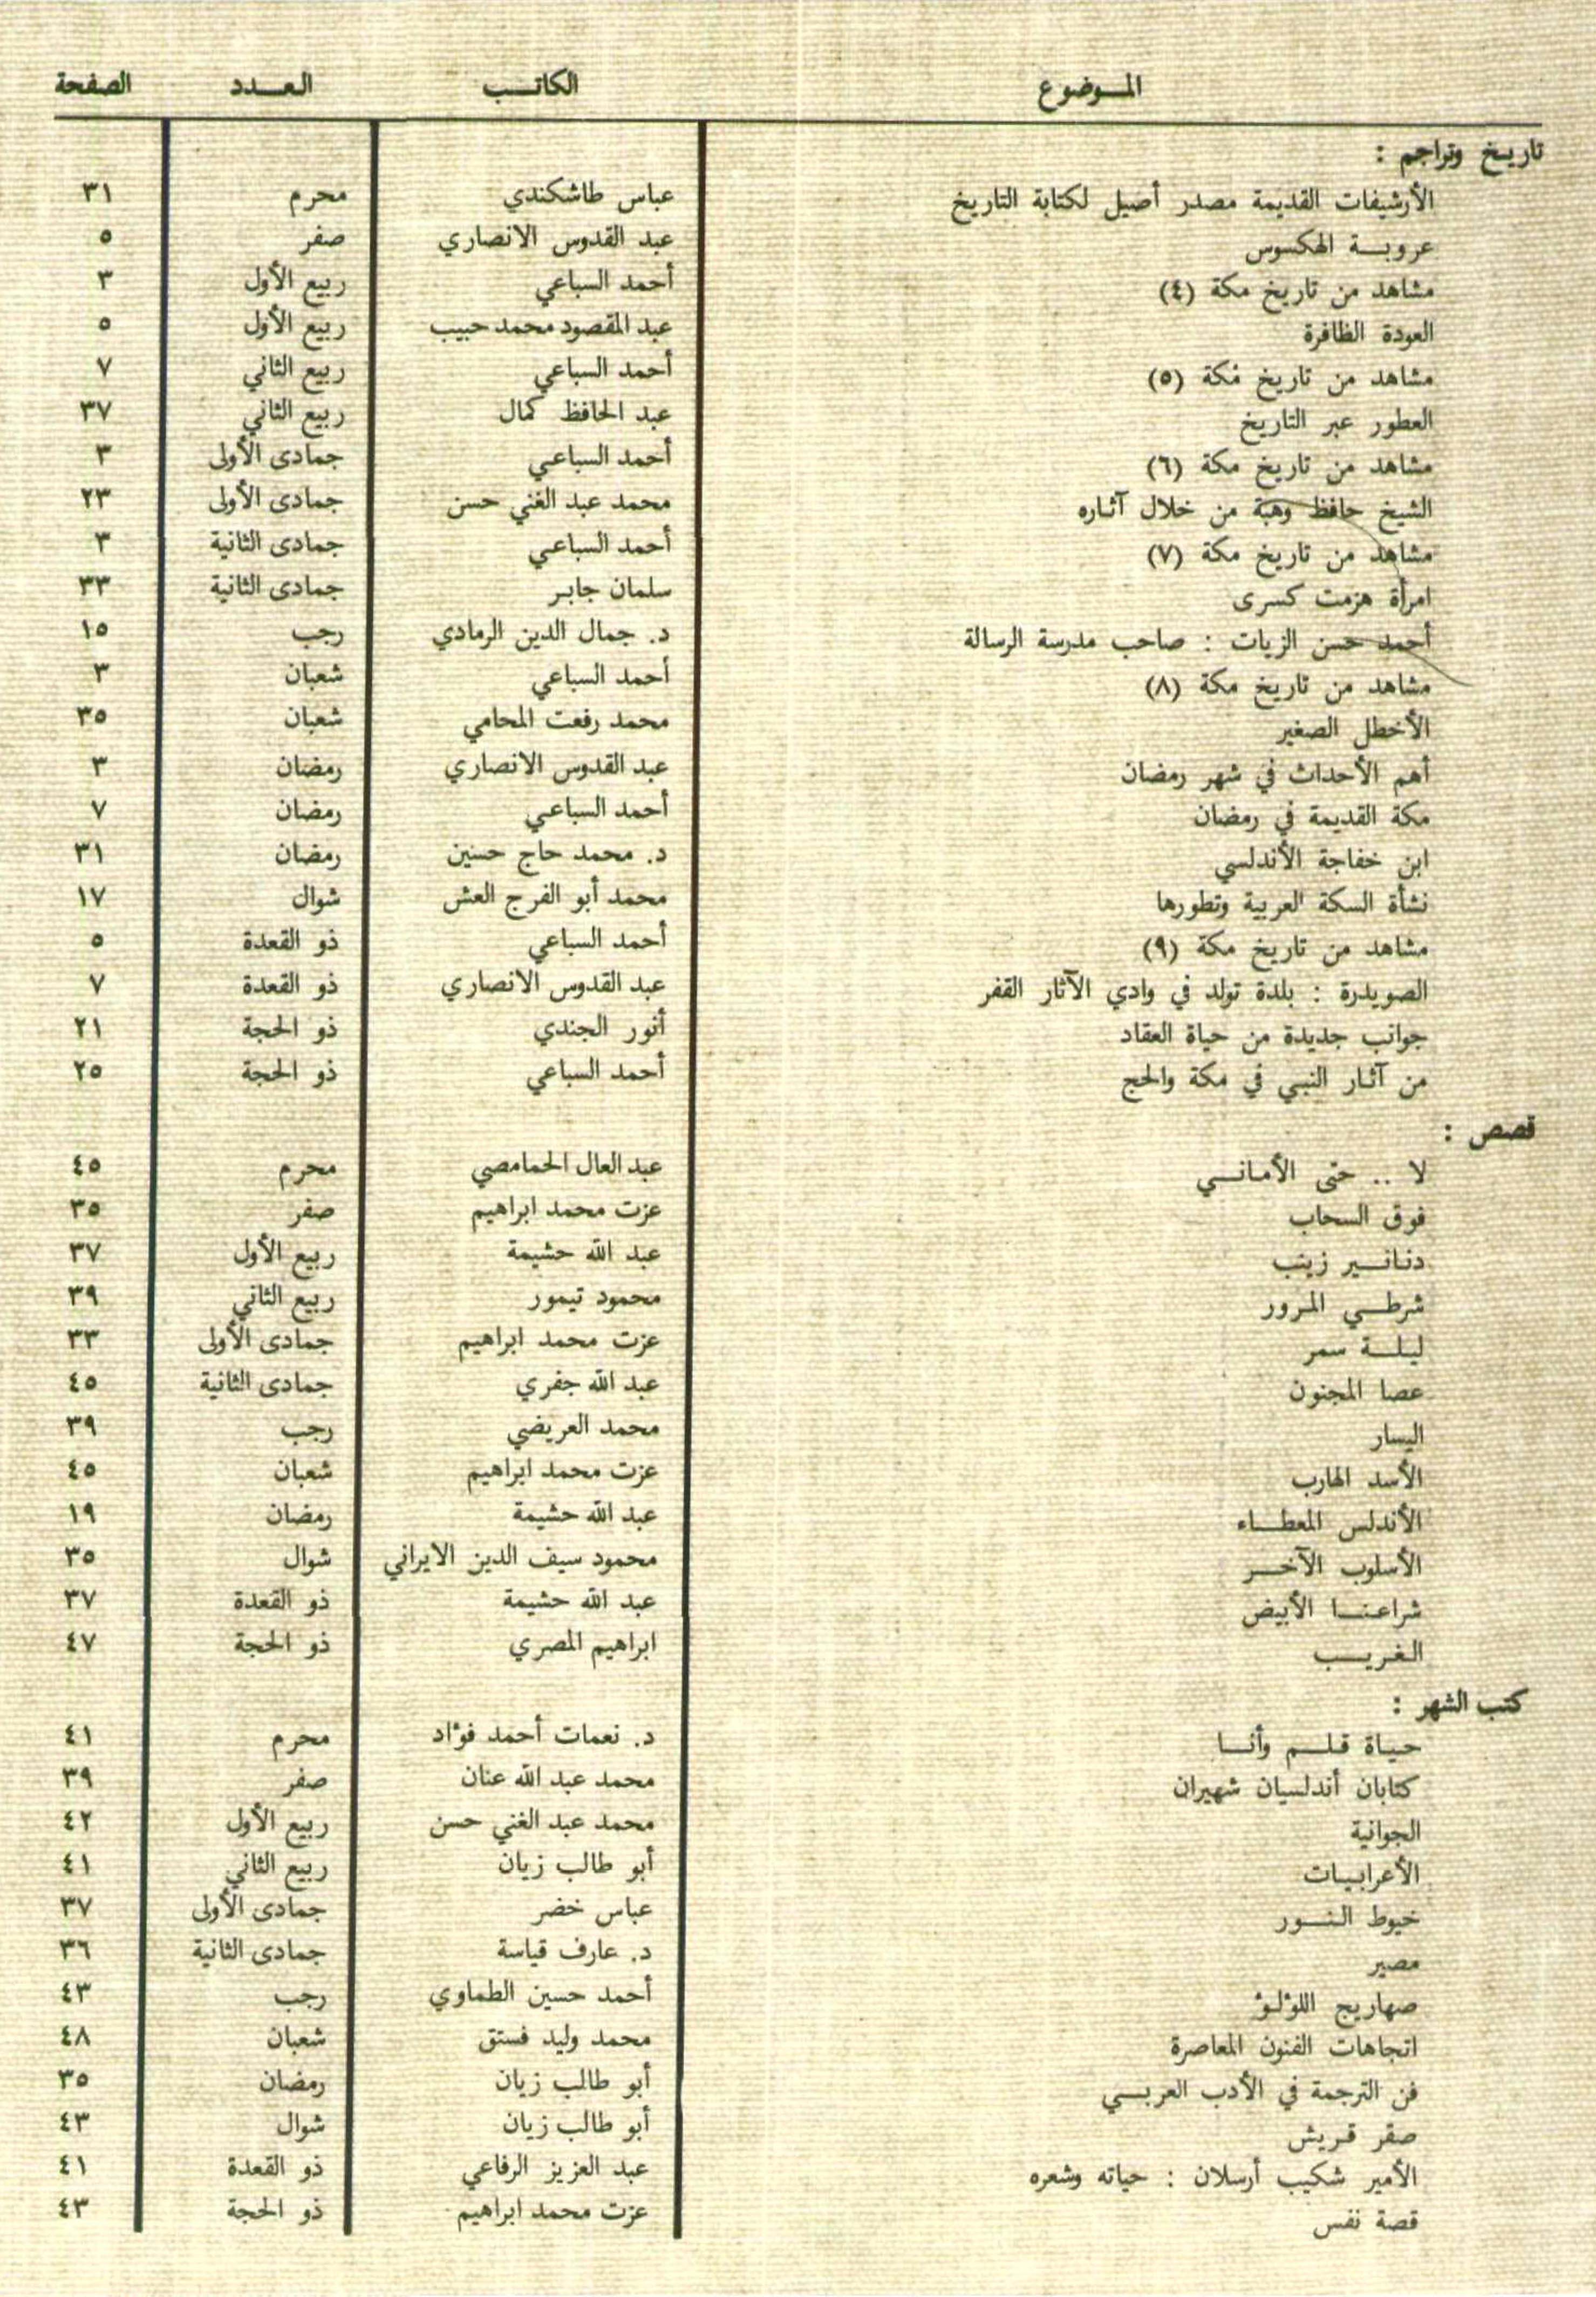 الموضوع الكاتب العدد الصفحة
تاريخ وتراجم :
الأرشيفات القديمة مصدر أصيل لكتابة التاريخ عباس طاشكندي محرم ٣١
عروبة الهكسوس عبد القدوس الانصاري صفر ٥
مشاهد من تاريخ مكة (٤) أحمد السباعي ربيع الأول ٣
العودة الظافرة عبد المقصود محمد حبيب ربيع الأول ٥
مشاهد من تاريخ مكة (٥) أحمد السباعي ربيع الثاني ٧
العطور عبر التاريخ عبد الحافظ كمال ربيع الثاني ٣٧
مشاهد من تاريخ مكة (٦) أحمد السباعي جمادى الأولى ٣
الشيخ حافظ وهبة من خلال آثاره محمد عبد الغني حسن جمادى الأولى ٢٣
مشاهد من تاريخ مكة (٧) أحمد السباعي جمادى الثانية ٣
امرأة هزمت كسرى سلمان جابر جمادى الثانية ٣٣
أحمد حسن الزيات : صاحب مدرسة الرسالة د. جمال الدين الرمادي رجب ١٥
مشاهد من تاريخ مكة (٨) أحمد السباعي شعبان ٣
الأخطل الصغير محمد رفعت المحامي شعبان ٣٥
أهم الأحداث في شهر رمضان عبد القدوس الانصاري رمضان ٣
مكة القديمة في رمضان أحمد السباعي رمضان ٧
ابن خفاجة الأندلسي د. محمد حاج حسنين رمضان ٣١
نشأة السكة العربية وتطورها محمد أبو الفرج العش شوال ١٧
مشاهد من تاريخ مكة (٩) أحمد السباعي ذو القعدة ٥
الصويدرة : بلدة تولد في وادي الآثار القفر عبد القدوس الانصاري ذو القعدة ٧
جوانب جديدة من حياة العقاد أنور الجندي ذو الحجة ٢١
من آثار النبي في مكة والحج أحمد السباعي ذو الحجة ٢٥
قصص :
لا .. حتى الأماني عبد العال الحمامصي محرم ٤٥
فوق السحاب عزت محمد ابراهيم صفر ٣٥
دنانير زينب عبد الله حشيمة ربيع الأول ٣٧
شرطي المرور محمود تيمور ربيع الثاني ٣٩
ليلة سمر عزت محمد ابراهيم جمادى الأولى ٣٣
عصا المجنون عبد الله جفري جمادى الثانية ٤٥
اليسار محمد العريضي رجب ٣٩
الأسد الهارب عزت محمد ابراهيم شعبان ٤٥
الأندلس المعطاء عبد الله حشيمة رمضان ١٩
الأسلوب الآخر محمود سيف الدين الايراني شوال ٣٥
شراعنا الأبيض عبد الله حشيمة ذو القعدة ٣٧
الغريب ابراهيم المصري ذو الحجة ٤٧
كتب الشهر :
حياة قلم وأنا د. نعمات أحمد فؤاد محرم ٤١
كتابان أندلسيان شهيران محمد عبد الله عنان صفر ٣٩
الجوانية محمد عبد الغني حسن ربيع الأول ٤٢
الأعرابيات أبو طالب زيان ربيع الثاني ٤١
خيوط النور عباس خضر جمادى الأولى ٣٧
مصير د. عارف قياسة جمادى الثانية ٣٦
صهاريج اللؤلؤ أحمد حسين الطماوي رجب ٤٣
اتجاهات الفنون المعاصرة محمد وليد فستق شعبان ٤٨
فن الترجمة في الأدب العربي أبو طالب زيان رمضان ٣٥
صقر قريش أبو طالب زيان شوال ٤٣
الأمير شكيب أرسلان : حياته وشعره عبد العزيز الرفاعي ذو القعدة ٤١
قصة نفس عزت محمد ابراهيم ذو الحجة ٤٣